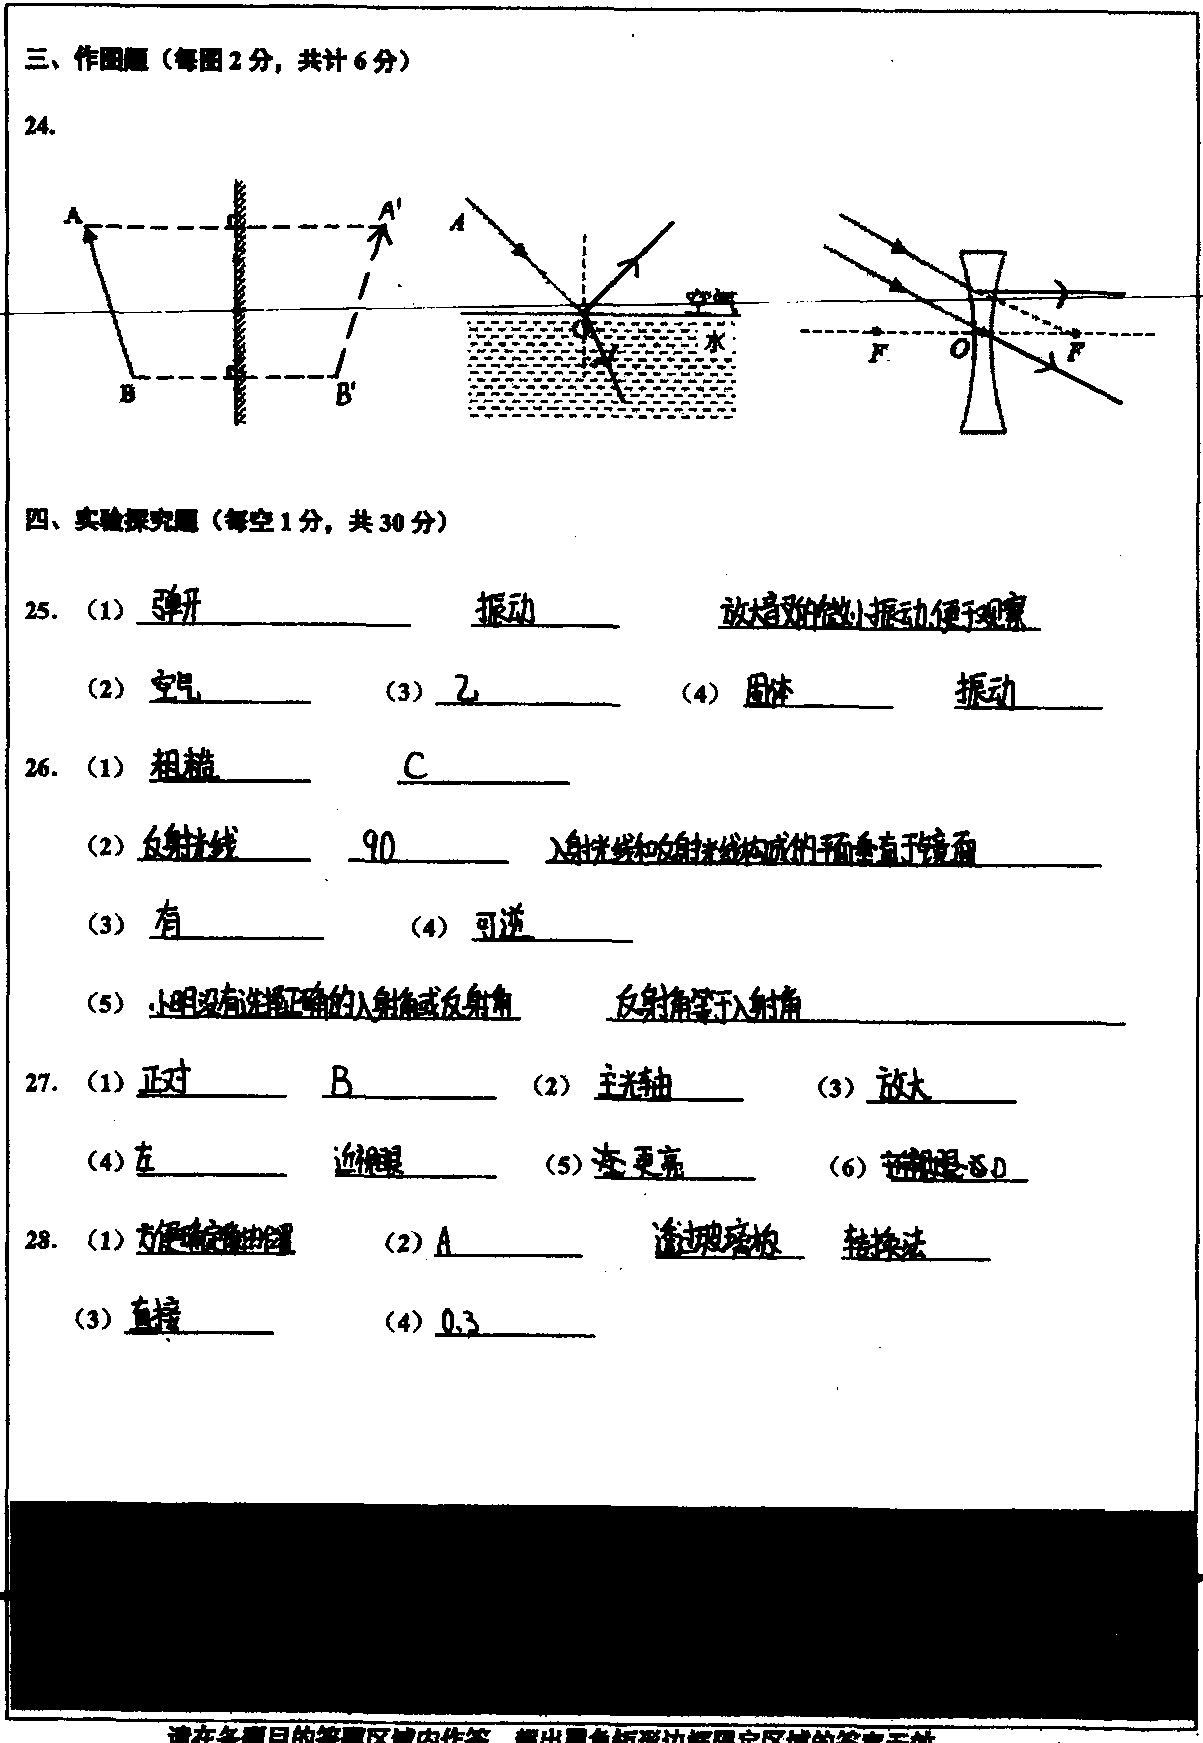 三、作图题（每图 2 分，共计 6 分）
24.
A A' B B'
A 空气 水
F O F
四、实验探究题（每空 1 分，共 30 分）
25. （1） 弹开 振动 放大音叉的微小振动,便于观察
（2） 空气 （3） 乙 （4） 固体 振动
26. （1） 粗糙 C
（2） 反射光线 90 入射光线和反射光线构成的平面垂直于镜面
（3） 有 （4） 可逆
（5） 小明没有选择正确的入射角或反射角 反射角等于入射角
27. （1） 正对 B （2） 主光轴 （3） 放大
（4） 左 近视眼 （5） 更亮 （6）
28. （1） 方便确定像的位置 （2） A 透过玻璃板 转换法
（3） 直接 （4） 0.3
请在各题目的答题区域内作答，超出黑色矩形边框限定区域的答案无效